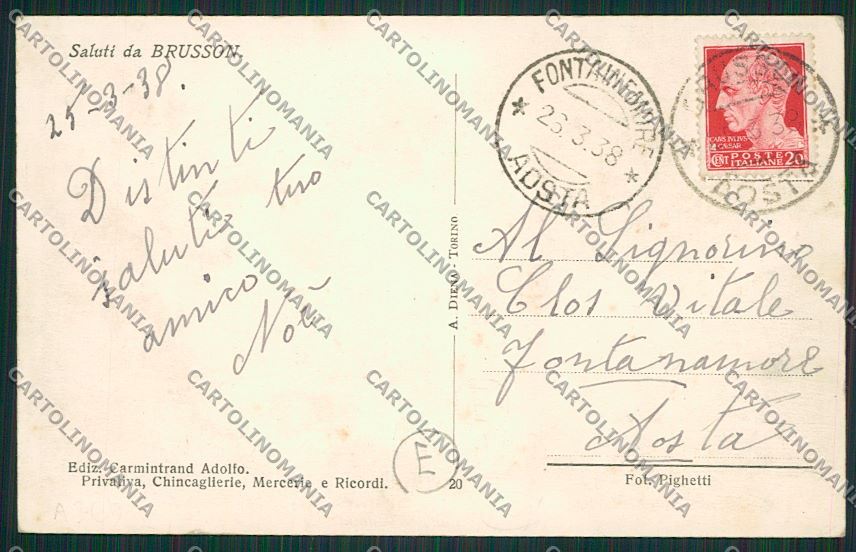 Saluti da BRUSSON.
25-3-38.
Distinti
saluti tuo
amico
Noè
Ediz. Carmintrand Adolfo.
Privativa, Chincaglierie, Mercerie e Ricordi.
20
A. DIENA - TORINO
E
* FONTAINEMORE *
26.3.38
AOSTA
CAIVS.IVLIVS
CAESAR
CENT POSTE ITALIANE 20
BRUSSON
AOSTA
Al Signorino
Clos Vitale
Fontanamore
Aosta
Fot. Pighetti
CARTOLINOMANIA